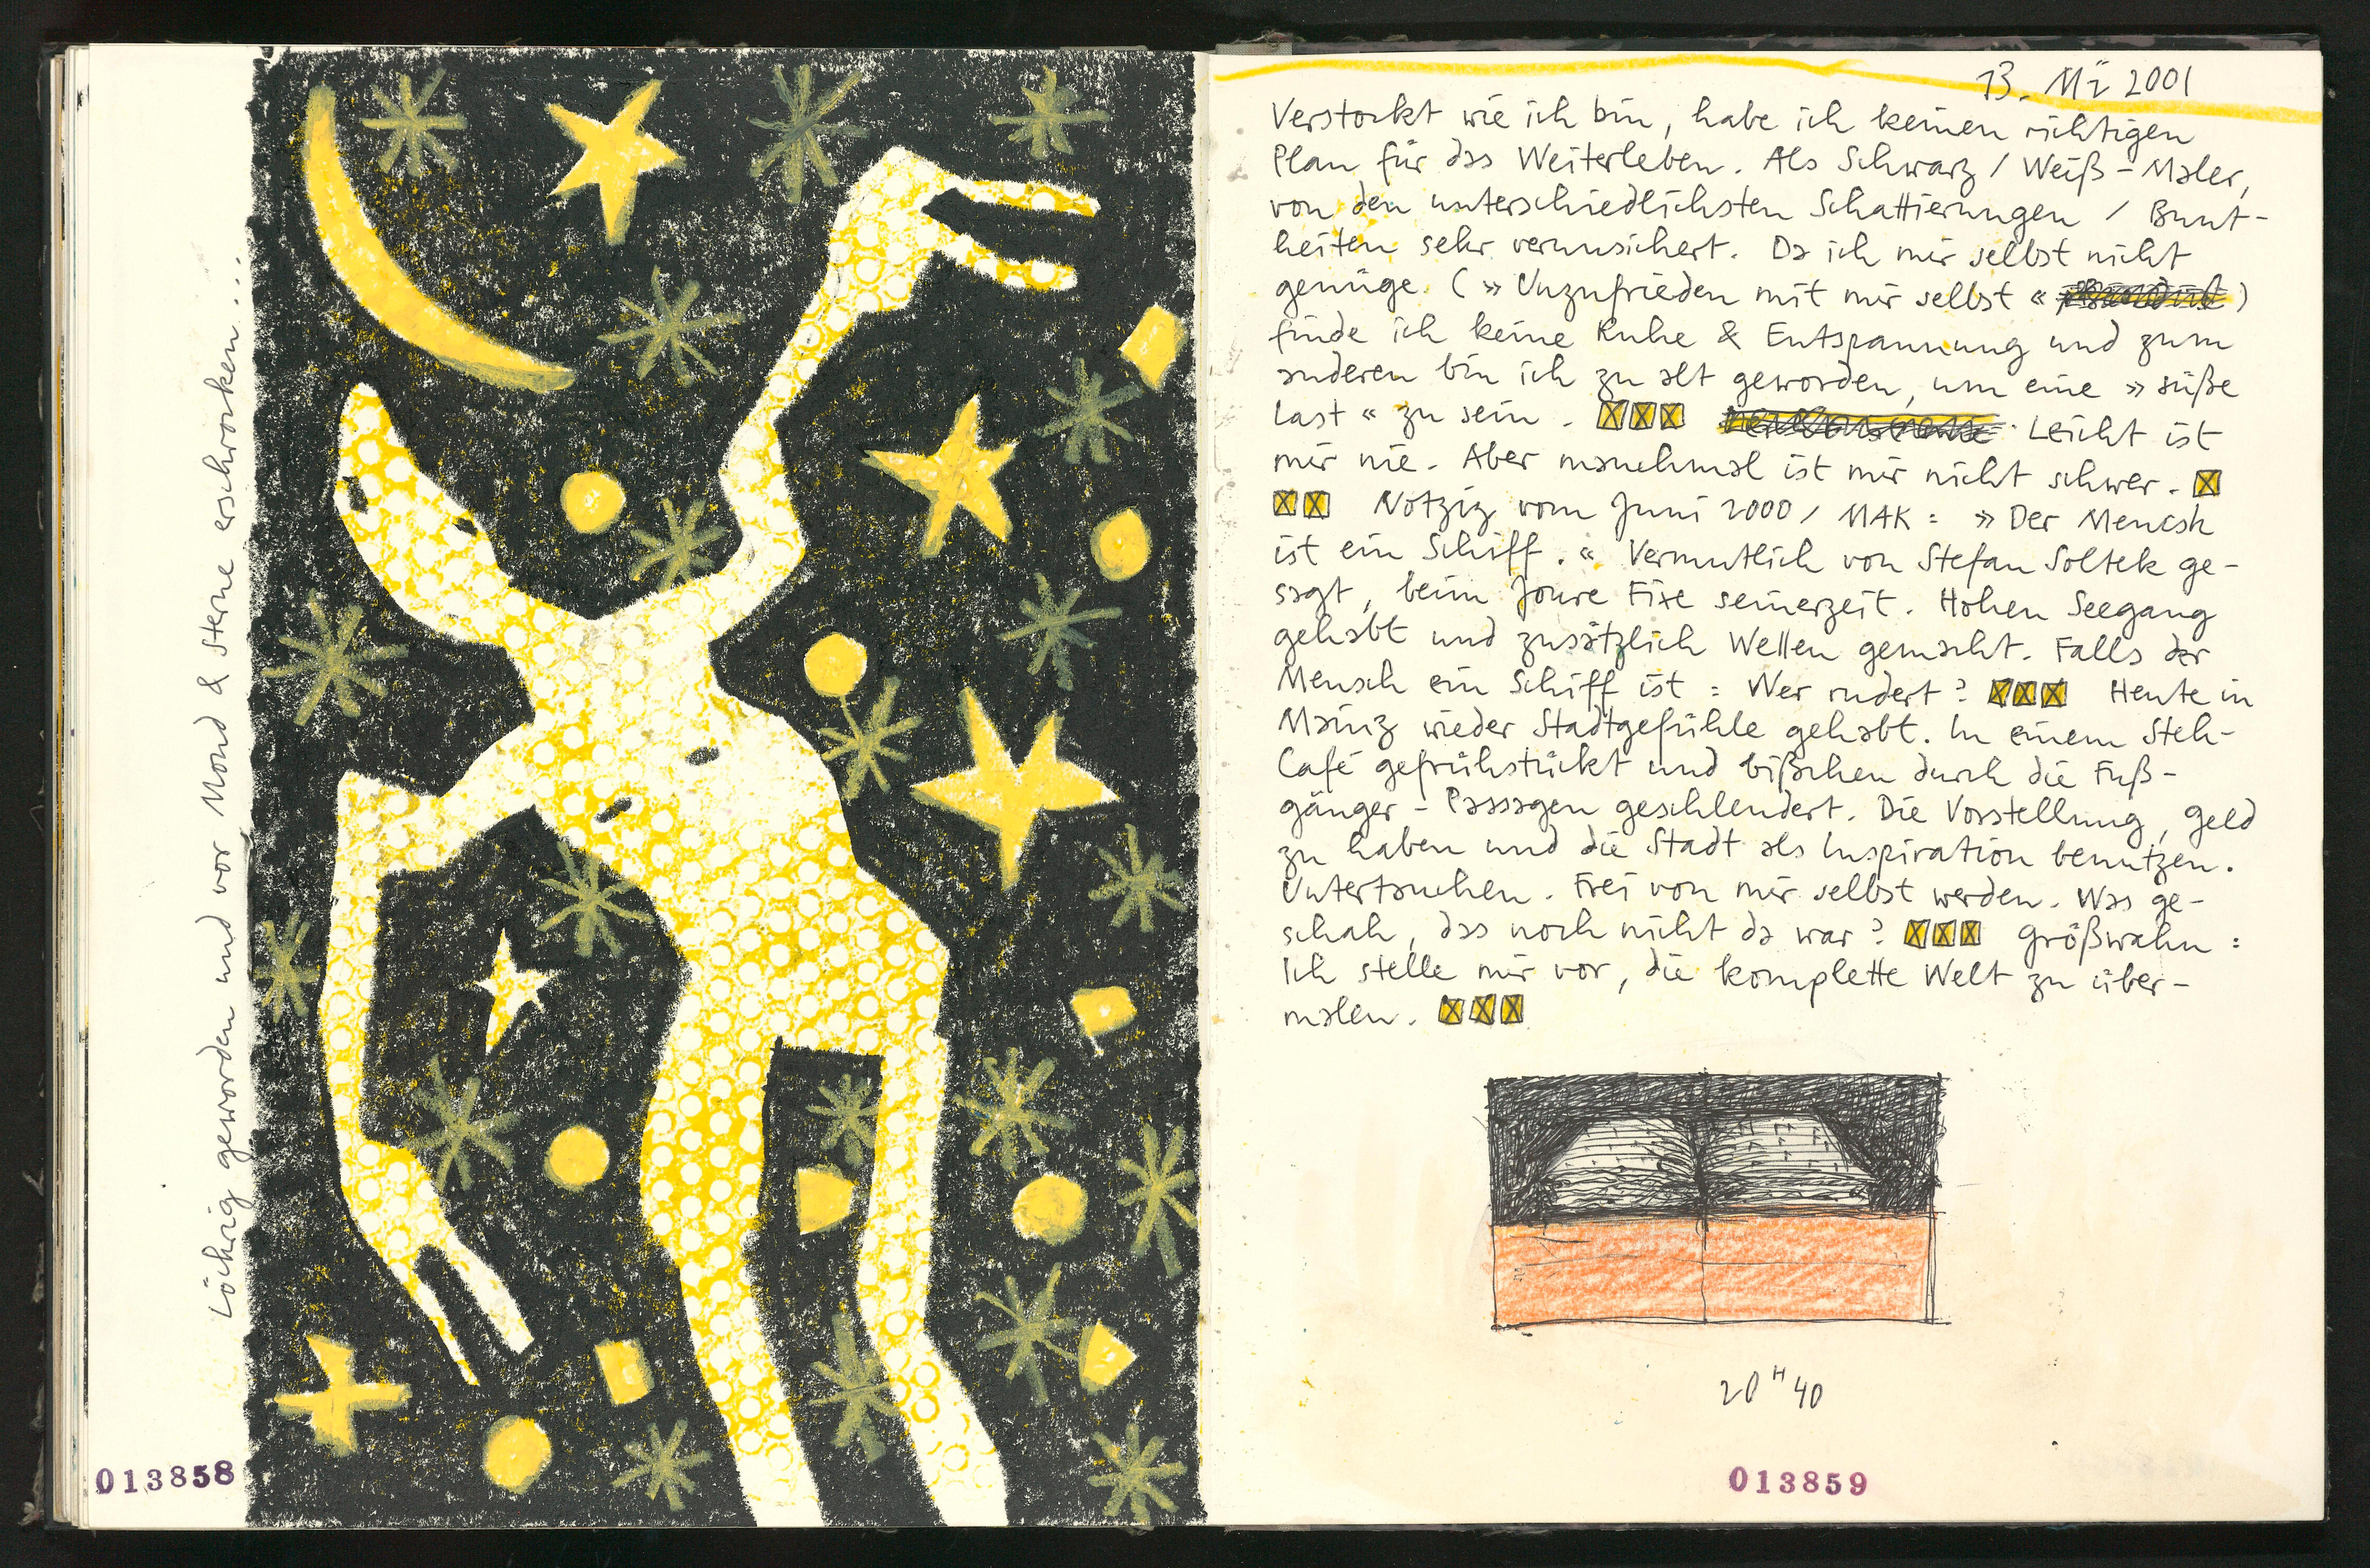 Löchrig geworden und vor Mond & Sterne erschrocken...
013858
13. Mi 2001
Verstockt wie ich bin, habe ich keinen richtigen
Plan für das Weiterleben. Als Schwarz / Weiß-Maler,
von den unterschiedlichsten Schattierungen / Bunt-
heiten sehr verunsichert. Da ich mir selbst nicht
genüge. (» Unzufrieden mit mir selbst « )
finde ich keine Ruhe & Entspannung und zum
anderen bin ich zu alt geworden, um eine » süße
Last « zu sein. Leicht ist
mir nie. Aber manchmal ist mir nicht schwer.
Notziz vom Juni 2000 / MAK: » Der Mencsh
ist ein Schiff. « Vermutlich von Stefan Soltek ge-
sagt, beim Joure Fixe seinerzeit. Hohen Seegang
gehabt und zusätzlich Wellen gemacht. Falls der
Mensch ein Schiff ist: Wer rudert? Heute in
Mainz wieder Stadtgefühle gehabt. In einem Steh-
Café gefrühstückt und bißchen durch die Fuß-
gänger-Passagen geschlendert. Die Vorstellung, Geld
zu haben und die Stadt als Inspiration benutzen.
Untertauchen. Frei von mir selbst werden. Was ge-
schah, das noch nicht da war? Größwahn:
Ich stelle mir vor, die komplette Welt zu über-
malen.
20 H 40
013859